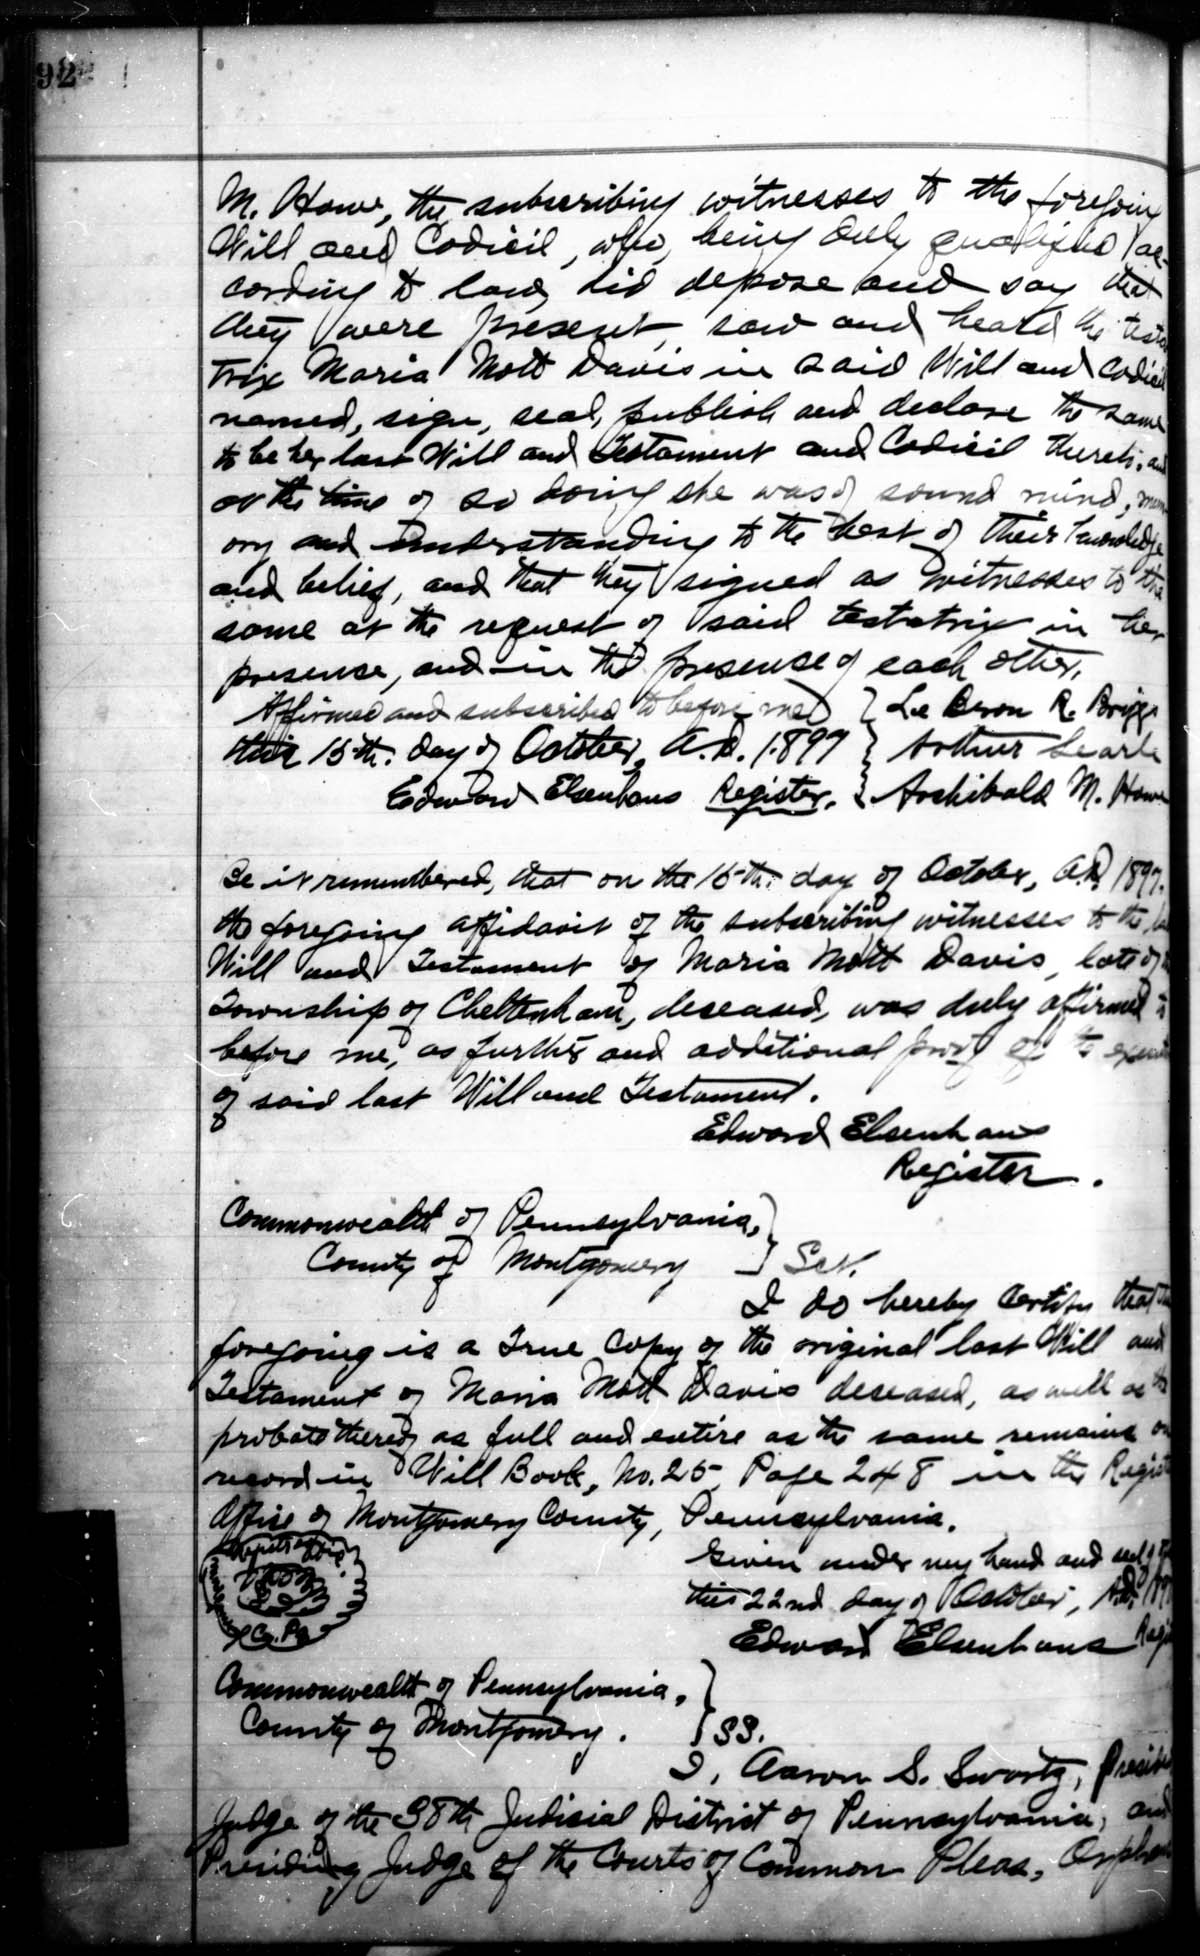 92
M. Howe, the subscribing witnesses to the foregoing
Will and Codicil, who, being duly qualified ac-
cording to law, did depose and say that
they were present, saw and heard the testa
trix Maria Mott Davis in said Will and Codicil
named, sign, seal, publish and declare the same
to be her last Will and Testament and Codicil thereto; and
at the time of so doing she was of sound mind, mem
ory and understanding to the best of their knowledge
and belief, and that they signed as witnesses to the
same at the request of said testatrix in her
presense, and in the presense of each other.
Affirmed and subscribed to before me } Le Baron R. Briggs
this 15th. day of October, A.D. 1897 } Arthur Searle
Edward Elsenhans Register. } Archibald M. Howe
Be it remembered, that on the 15th. day of October, A.D. 1897.
the foregoing affidavit of the subscribing witnesses to the
Will and Testament of Maria Mott Davis, late of
Township of Cheltenham, deceased, was duly affirmed
before me, as further and additional proof of the
of said last Will and Testament.
Edward Elsenhans
Register.
Commonwealth of Pennsylvania, }
County of Montgomery } Sct.
I do hereby Certify that
foregoing is a True Copy of the original last Will and
Testament of Maria Mott Davis deceased, as well as the
probate thereof as full and entire as the same remains on
record in Will Book, No. 25 Page 248 in the Regist
Office of Montgomery County, Pennsylvania.
Given under my hand and seal
this 22nd day of October, A.D. 189
Edward Elsenhans Regi
Co. Pa
Commonwealth of Pennsylvania, }
County of Montgomery. } SS.
I, Aaron S. Swartz, Presid
Judge of the 38th Judicial District of Pennsylvania, and
Presiding Judge of the Courts of Common Pleas, Orphans